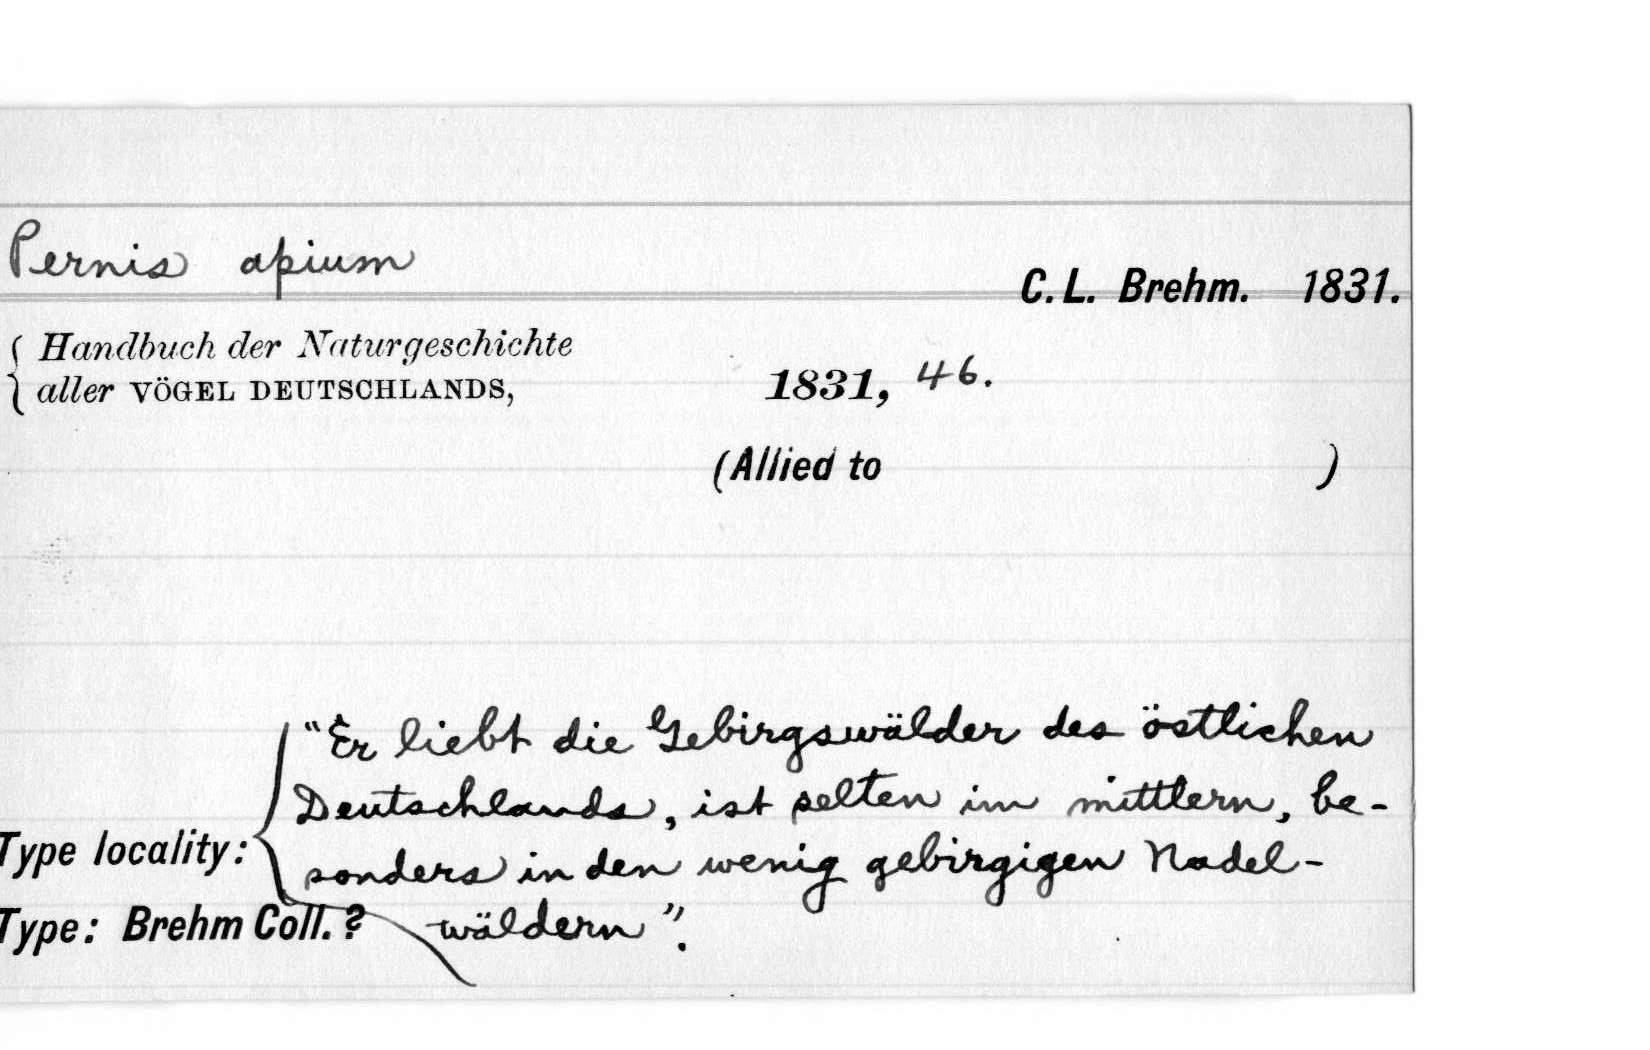 Pernis apium
C. L. Brehm. 1831.
Handbuch der Naturgeschichte
aller VÖGEL DEUTSCHLANDS, 1831, 46.
(Allied to )
"Er liebt die Gebirgswälder des östlichen
Deutschlands, ist selten im mittlern, be-
Type locality: sonders in den wenig gebirgigen Nadel-
Type: Brehm Coll. ? wäldern".